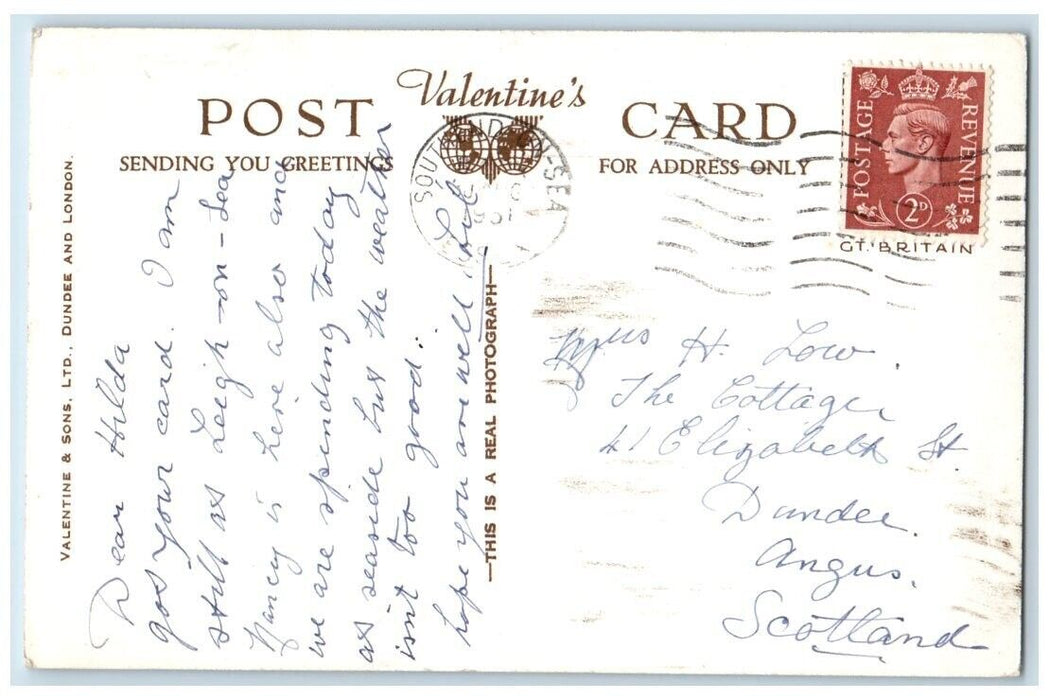 POST Valentine's CARD
SENDING YOU GREETINGS FOR ADDRESS ONLY
VALENTINE & SONS, LTD., DUNDEE AND LONDON.
Dear Hilda
got your card. I am
still at Leigh-on-Sea
Nancy is here also and
we are spending today
at seaside but the weather
isnt too good.
hope you are well
—THIS IS A REAL PHOTOGRAPH—
SOUTHEND-ON-SEA
POSTAGE REVENUE
2D
GT. BRITAIN
H. Low.
The Cottage
41 Elizabeth St.
Dundee.
Angus.
Scotland